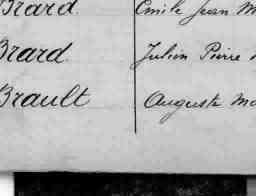 Brard Emile Jean M
Brard Julien Pierre
Brault Auguste Ma